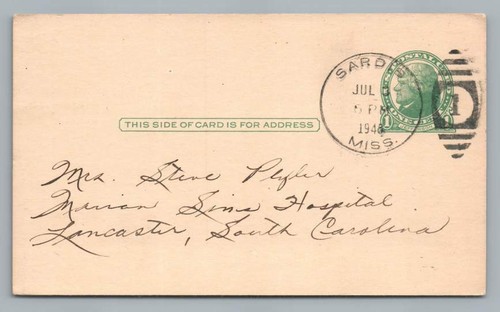 SARDIS
JUL
5 PM
194
MISS.
1
THIS SIDE OF CARD IS FOR ADDRESS
Mrs. Steve Plyler
Marion Sims Hospital
Lancaster, South Carolina